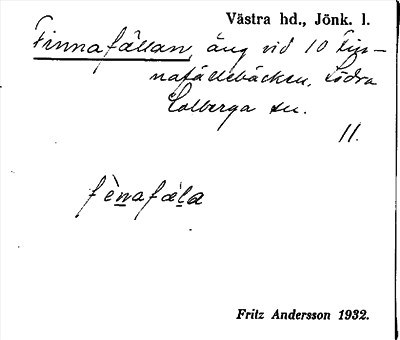 Västra hd., Jönk. l.
Finnafällan, äng vid 10 Fin-
nafällebäcken, Södra
Solberga sn.
11.
fènafäla
Fritz Andersson 1932.